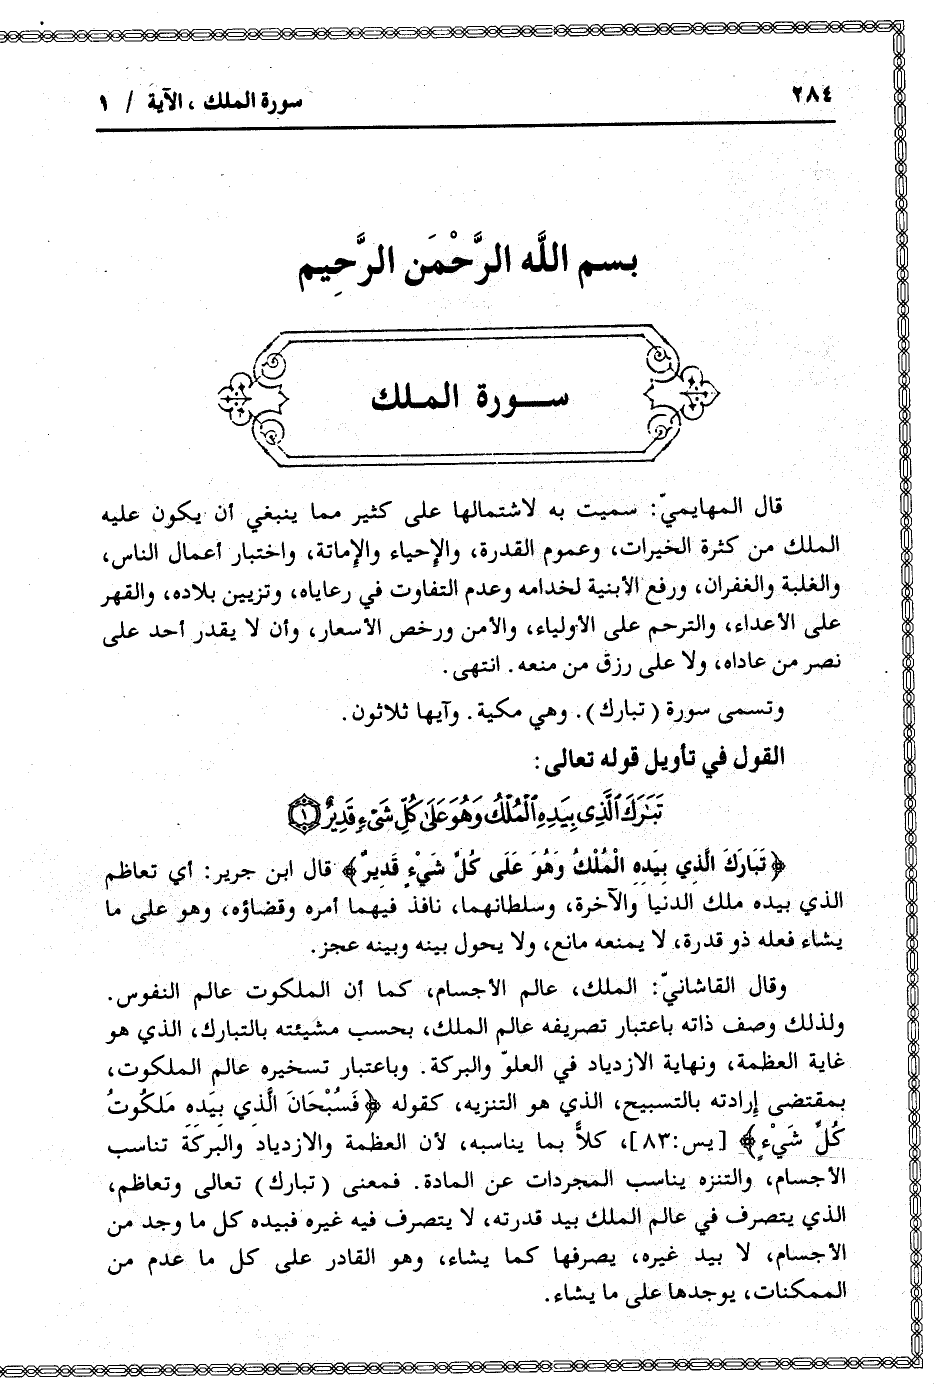 ٢٨٤
سورة الملك ، الآية / ١
بسم اللَّه الرَّحْمَن الرَّحِيم
ســـورة الملك
قال المهايميّ: سميت به لاشتمالها على كثير مما ينبغي أن يكون عليه
الملك من كثرة الخيرات، وعموم القدرة، والإحياء والإماتة، واختبار أعمال الناس،
والغلبة والغفران، ورفع الأبنية لخدامه وعدم التفاوت في رعاياه، وتزيين بلاده، والقهر
على الأعداء، والترحم على الأولياء، والأمن ورخص الأسعار، وأن لا يقدر أحد على
نصر من عاداه، ولا على رزق من منعه. انتهى.
وتسمى سورة (تبارك). وهي مكية. وآيها ثلاثون.
القول في تأويل قوله تعالى:
تَبَٰرَكَ ٱلَّذِى بِيَدِهِ ٱلْمُلْكُ وَهُوَ عَلَىٰ كُلِّ شَىْءٍ قَدِيرٌ ١
﴿تَبَارَكَ الَّذِي بِيَدِهِ الْمُلْكُ وَهُوَ عَلَى كُلِّ شَيْءٍ قَدِيرٌ﴾ قال ابن جرير: أي تعاظم
الذي بيده ملك الدنيا والآخرة، وسلطانهما، نافذ فيهما أمره وقضاؤه، وهو على ما
يشاء فعله ذو قدرة، لا يمنعه مانع، ولا يحول بينه وبينه عجز.
وقال القاشانيّ: الملك، عالم الأجسام، كما أن الملكوت عالم النفوس.
ولذلك وصف ذاته باعتبار تصريفه عالم الملك، بحسب مشيئته بالتبارك، الذي هو
غاية العظمة، ونهاية الازدياد في العلوّ والبركة. وباعتبار تسخيره عالم الملكوت،
بمقتضى إرادته بالتسبيح، الذي هو التنزيه، كقوله ﴿فَسُبْحَانَ الَّذِي بِيَدِهِ مَلَكُوتُ
كُلِّ شَيْءٍ﴾ [يس:٨٣]، كلاًّ بما يناسبه، لأن العظمة والازدياد والبركة تناسب
الأجسام، والتنزه يناسب المجردات عن المادة. فمعنى (تبارك) تعالى وتعاظم،
الذي يتصرف في عالم الملك بيد قدرته، لا يتصرف فيه غيره فبيده كل ما وجد من
الأجسام، لا بيد غيره، يصرفها كما يشاء، وهو القادر على كل ما عدم من
الممكنات، يوجدها على ما يشاء.